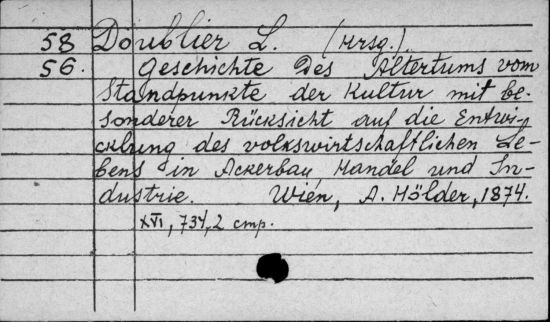 58 Doublier L. (Hrsg.)
56. Geschichte des Altertums vom
Standpunkte der Kultur mit be-
sonderer Rücksicht auf die Entwi-
cklung des volkswirtschaftlichen Le-
bens in Ackerbau, Handel und In-
dustrie. Wien, A. Hölder, 1874.
XVI, 734, 2 стр.